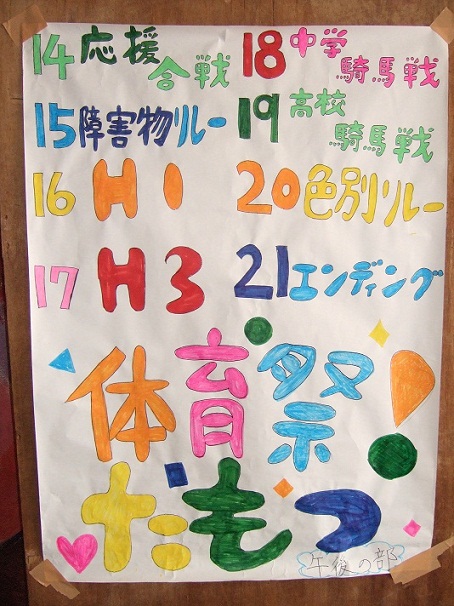 14 応援合戦
15 障害物リレー
16 H1
17 H3
18 中学騎馬戦
19 高校騎馬戦
20 色別リレー
21 エンディング
体育祭!
だもつ
午後の部